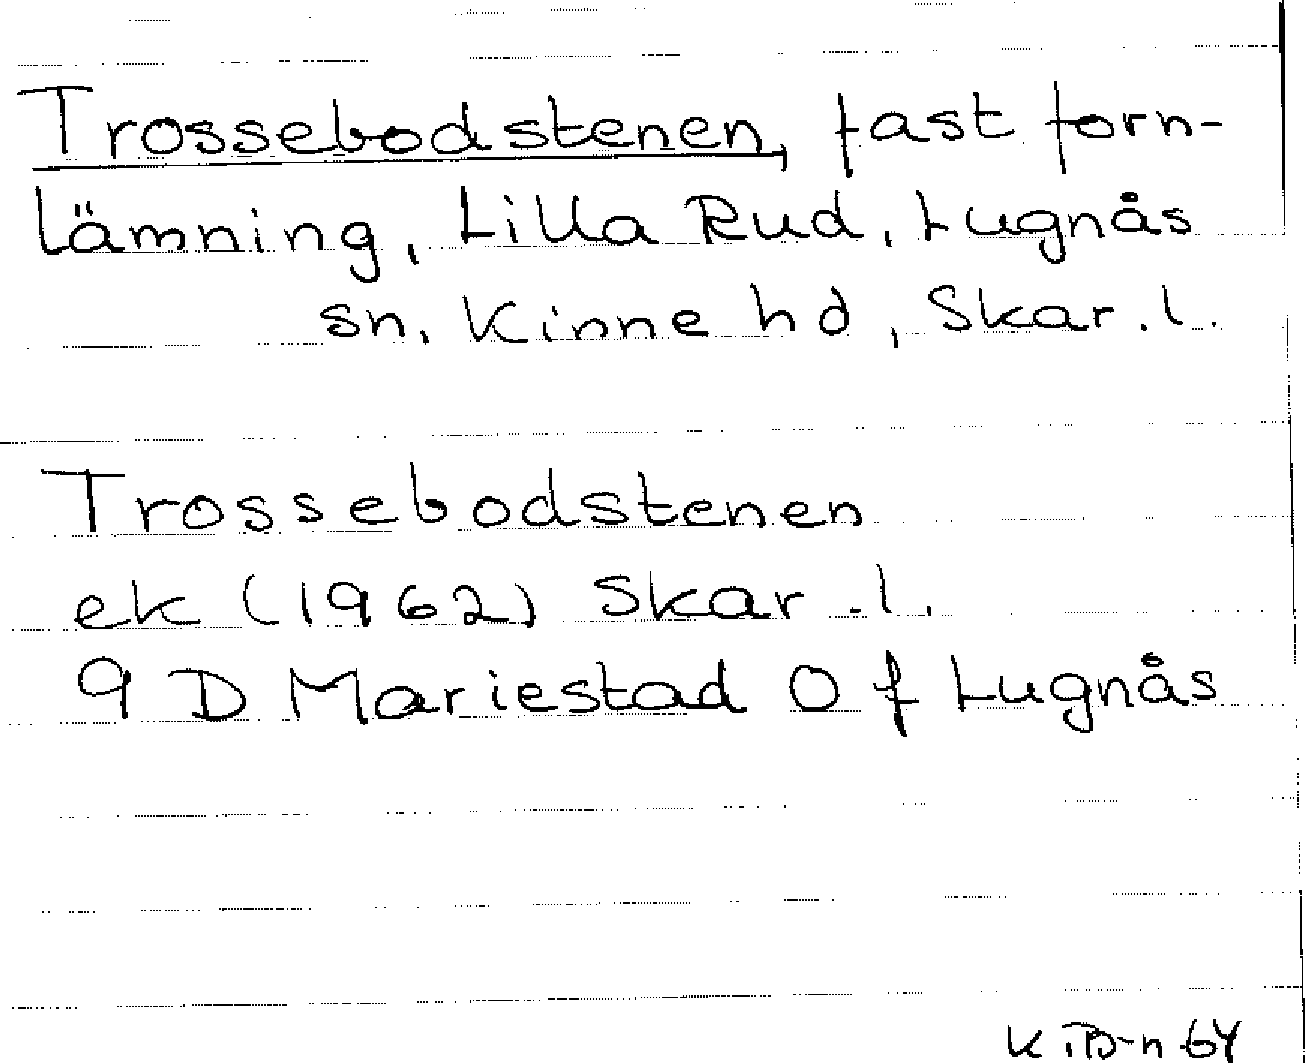 Trossebodstenen, fast forn-
lämning, Lilla Rud, Lugnås
sn, Kinne hd, Skar. l.
Trossebodstenen
ek (1962) Skar. l.
9 D Mariestad O f Lugnås